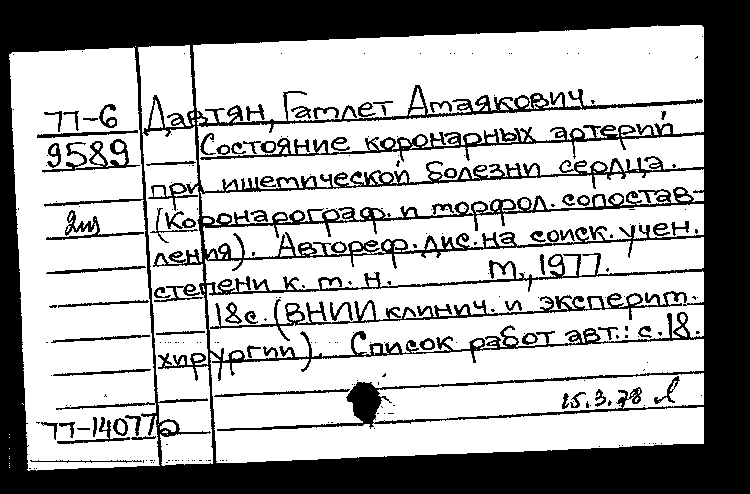 77-6 Давтян, Гамлет Атаякович.
9589 Состояние коронарных артерий
при ишемической болезни сердца.
2 (Коронарограф. и морфол. сопостав-
ления). Автореф. дис. на соиск. учен.
степени к. м. н. М., 1977.
18с. (ВНИИ клинич. и эксперим.
хирургии). Список работ авт.: с. 18.
15.3.78
77-14077